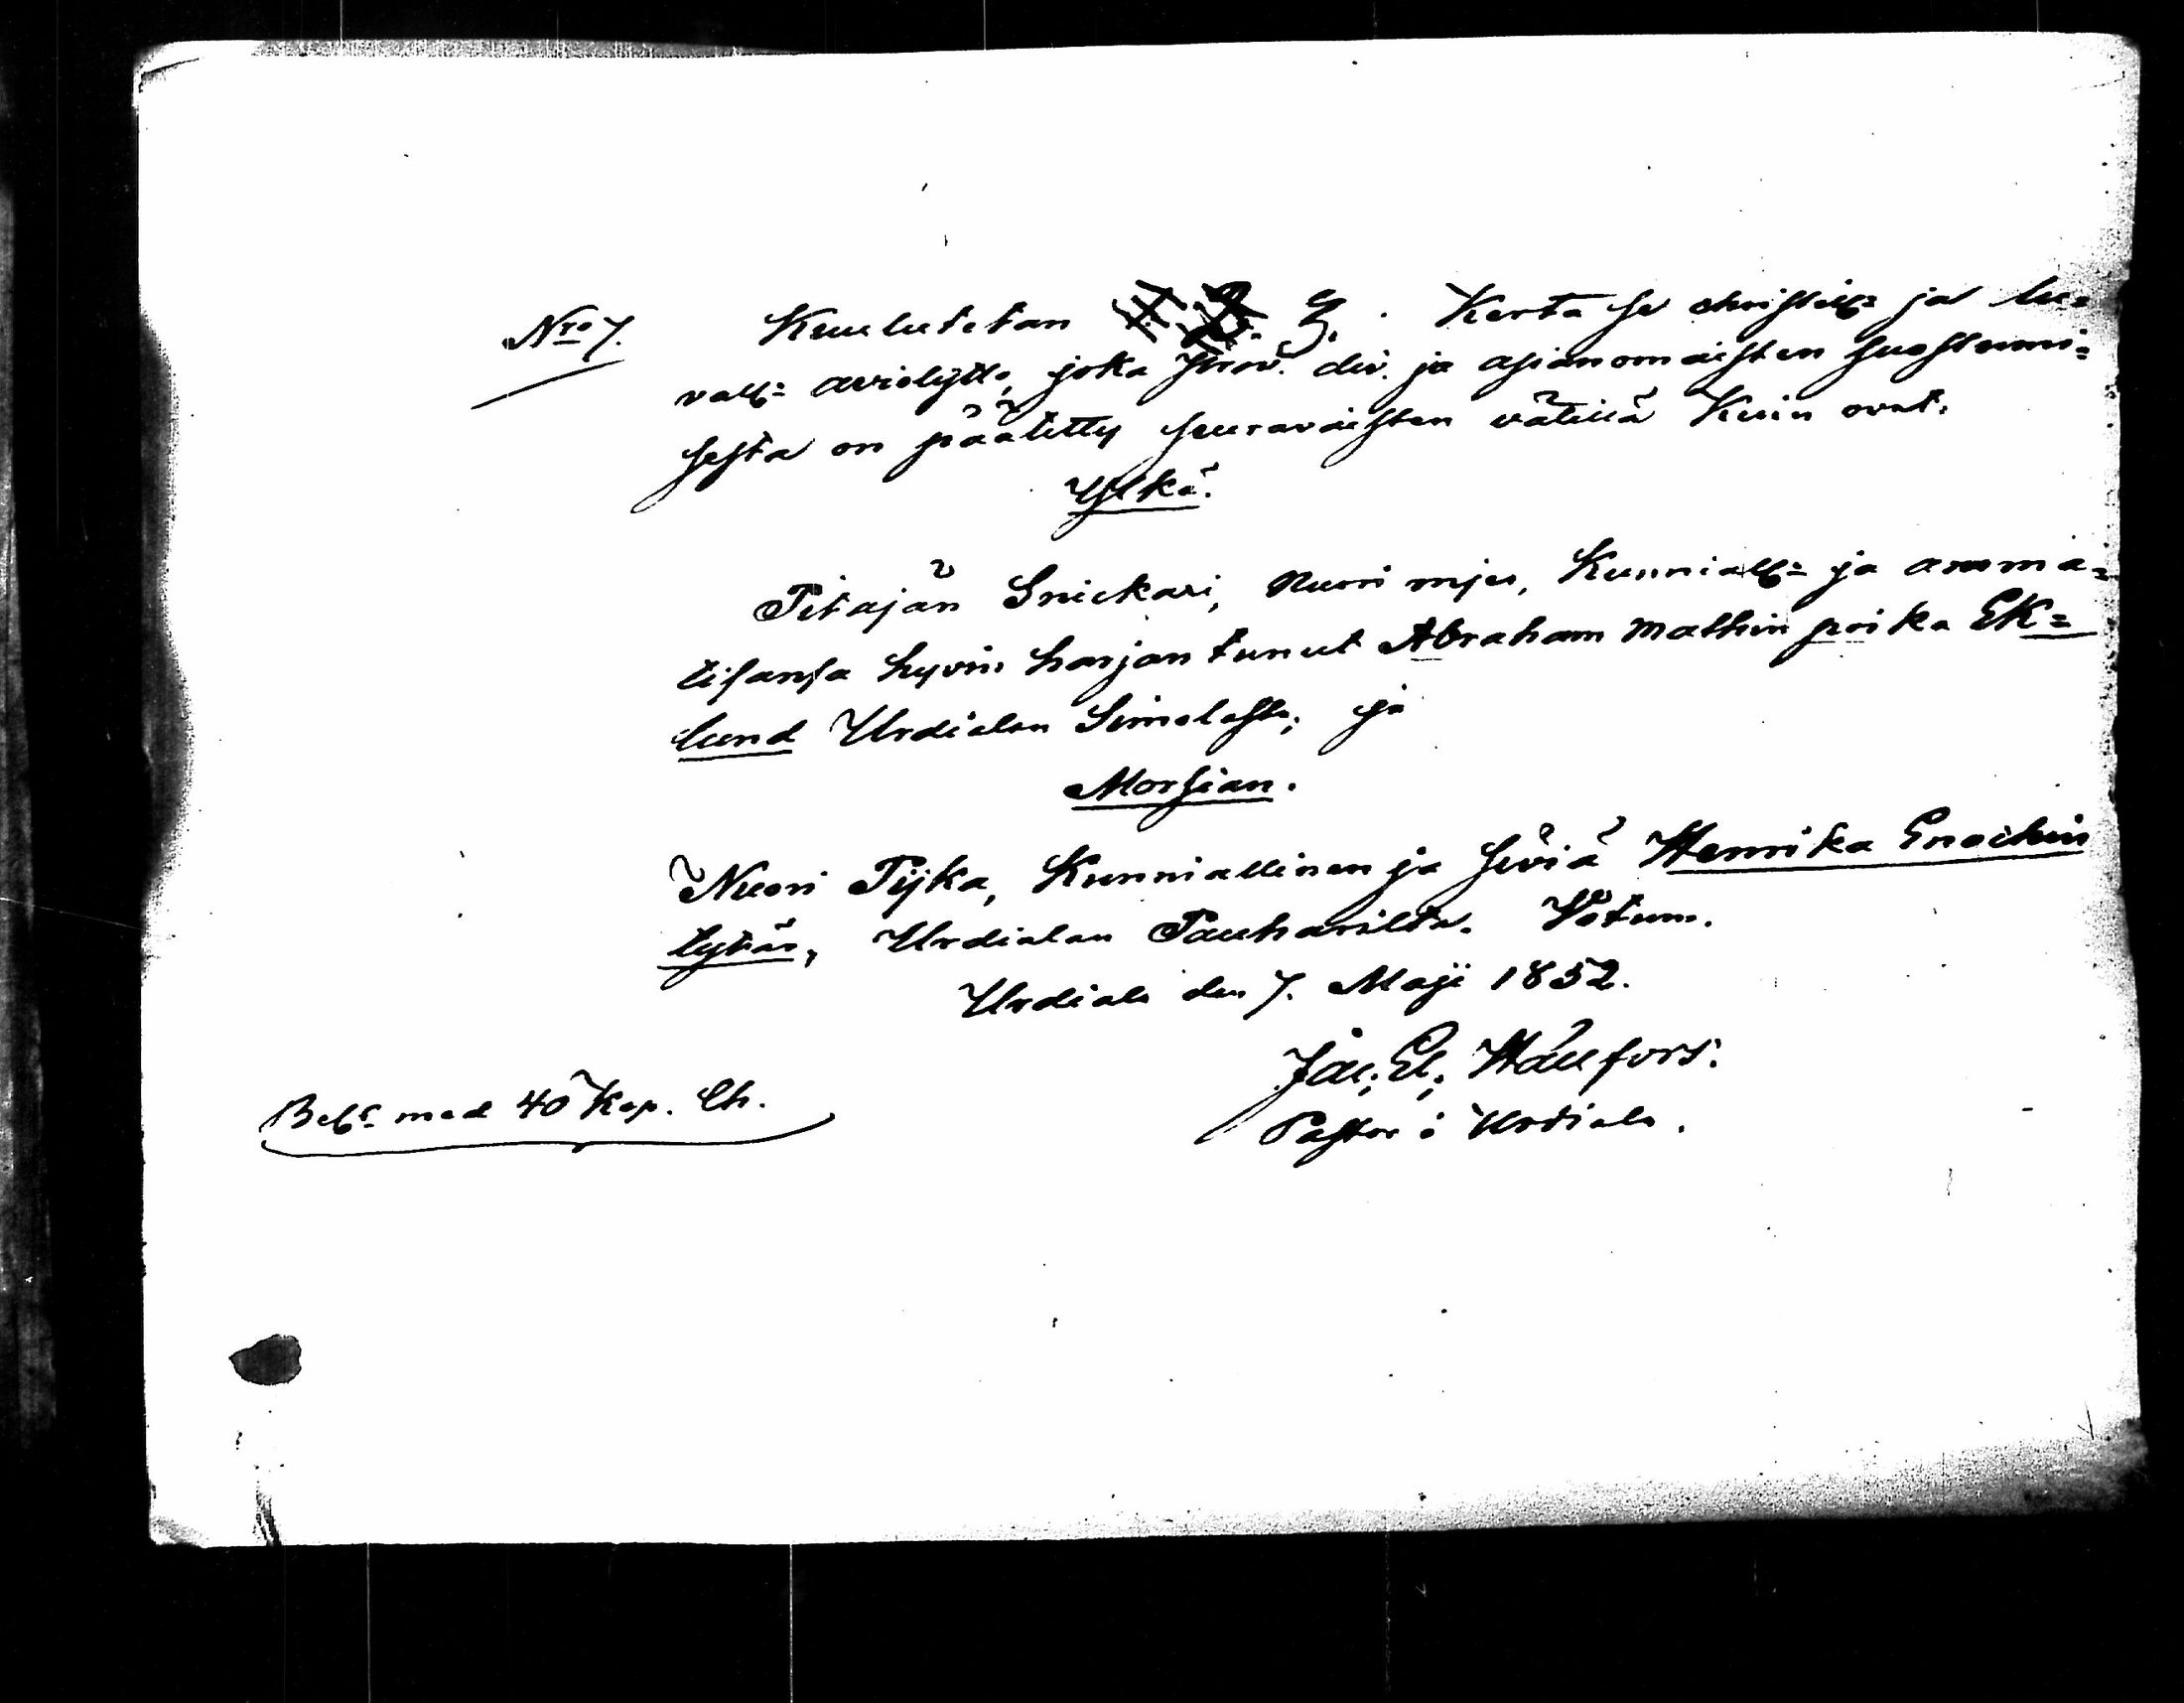 Nro 7. Kuulutetan 3. Kerta se christill: ja lu=
vall: avioliitto, joka prov. div. ja asianomaisten suostumi=
sesta on päätetty seuravaisten välillä Kuin ovat:
Yljkä.
Pitäjän Snickari, Nuori mjes, Kunniall: ja amma=
tisansa hyvin harjantunut Abraham Mathin poika Ek=
lund Urdialan Simolasta; ja
Morsian.
Nuori Pijka, Kunniallinen ja siviä Henrika Enochin
tytär, Urdialan Pauharilta. Votum.
Urdiala den 7. Maji 1852.
Jac: El: Hällfors.
Pastor i Urdiala.
Bel: med 40 Kop. Ch.